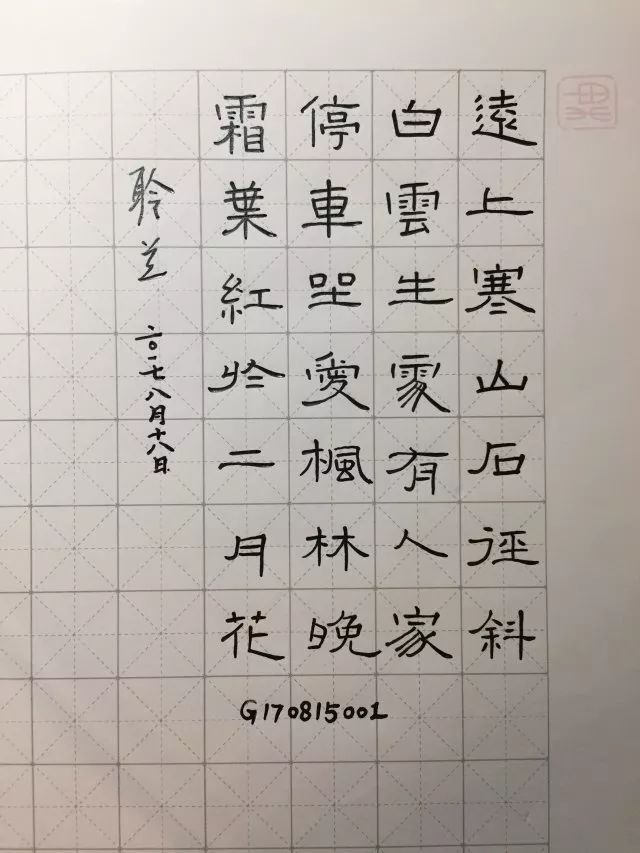 遠上寒山石徑斜
白雲生處有人家
停車坐愛楓林晚
霜葉紅於二月花
聆兰
二〇一七八月十八日
G170815001